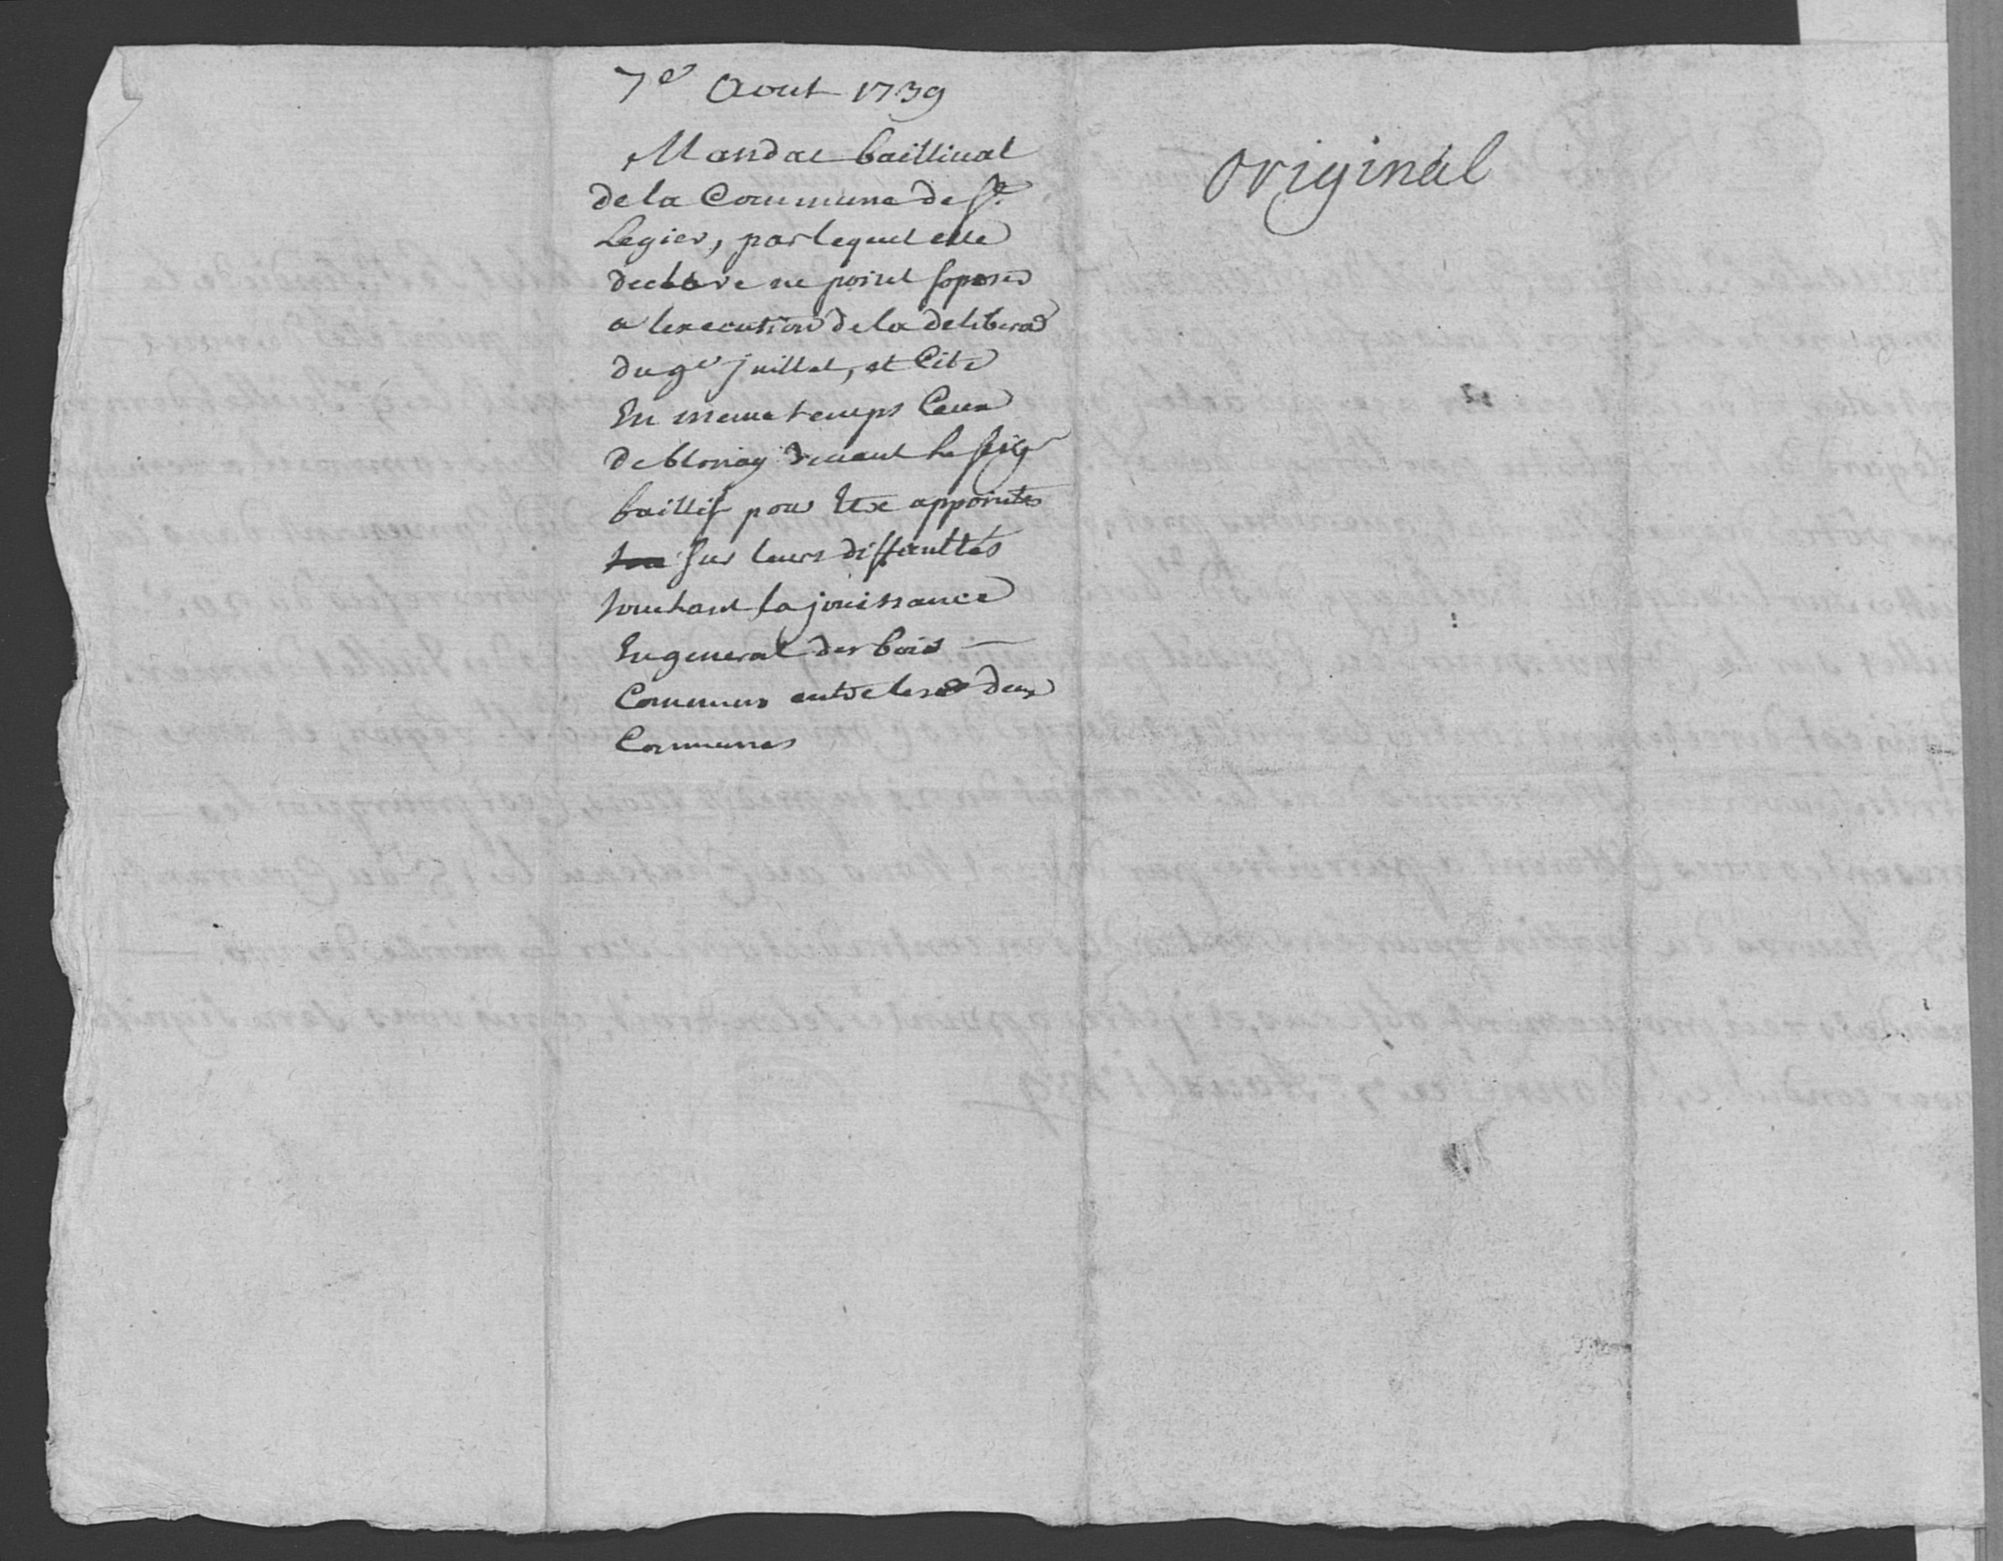 7e Aout 1739
Mandat baillival
de la Commune de St.
Legier, par lequel elle
declare ne point soposer
a lexecution de la deliberaõn
du 9e juillet, et Cite
En meme temps Ceux
de blonay devant le seigr
baillif pour Etre appointés
sur leurs difficultés
touchant la jouissance
En general des bois —
Communs entre les deux
Communes
Original